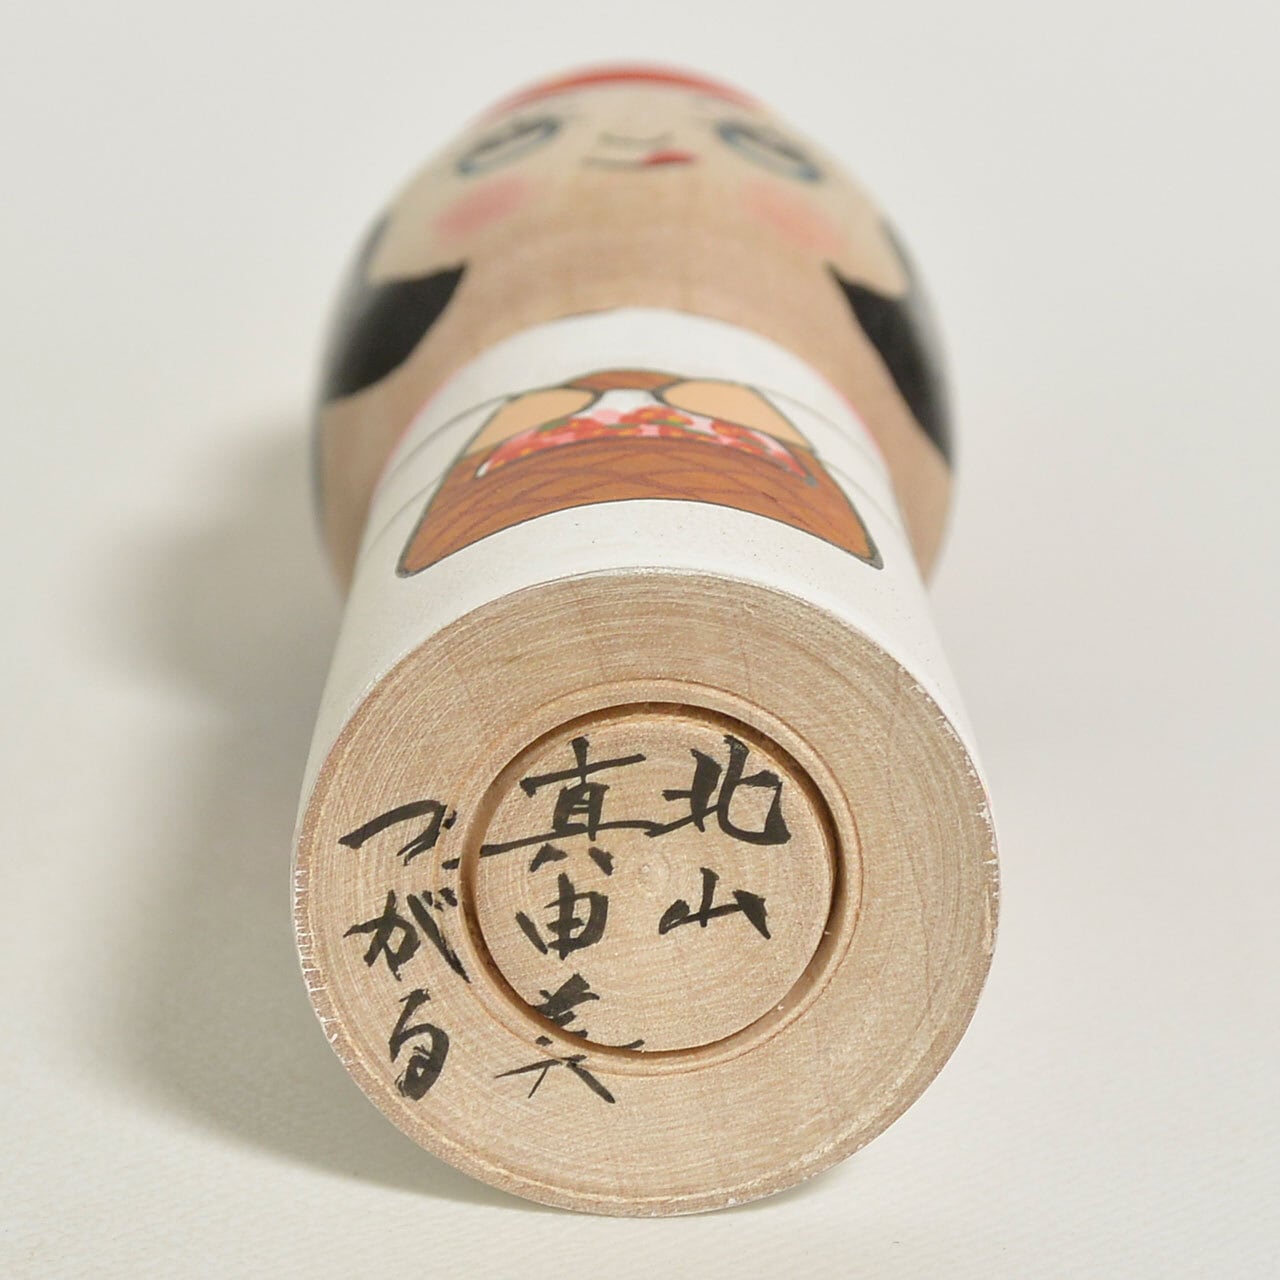 北山
真由美
づがる